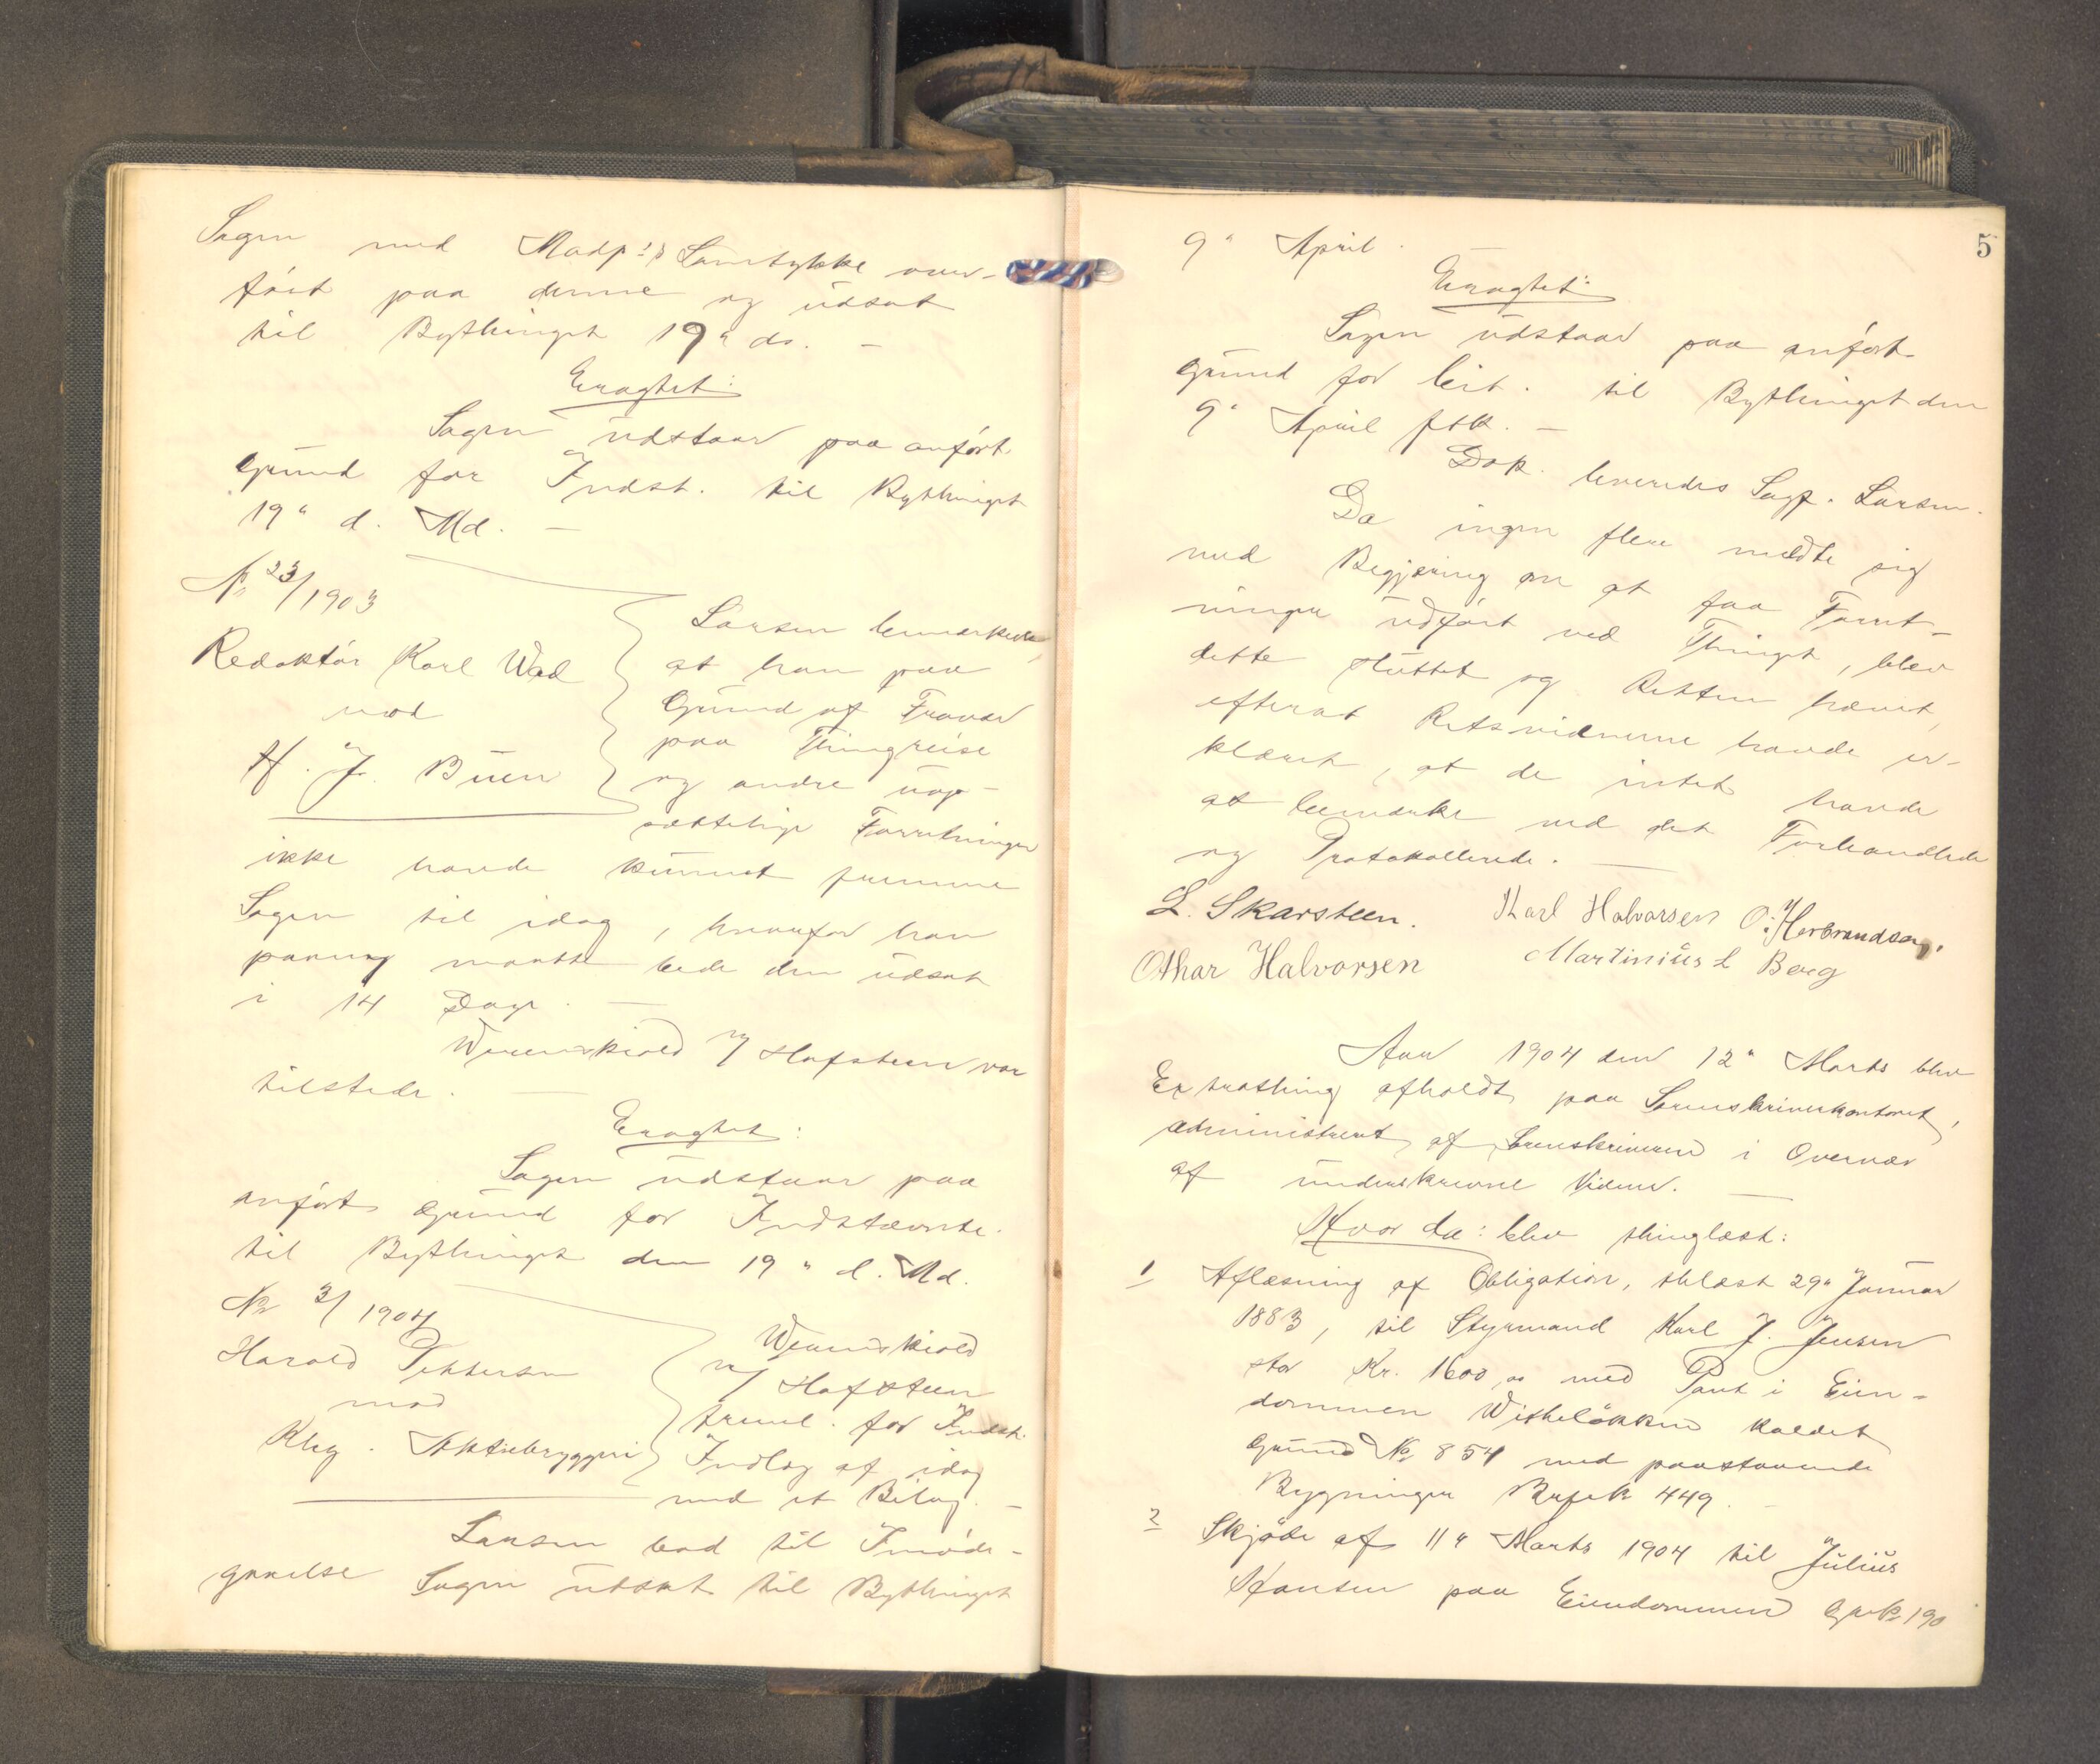 Sagen med Modp's Samtykke over-
ført paa denne og udsat
til Bythinget 19" ds. –
Eragtet:
Sagen udstaar paa anført
Grund for Indst. til Bythinget
19" d. Md. –
No 23/1903
Redaktør Karl Wad
mod
H. J. Buen
Larsen bemærkede,
at han paa
Grund af Fravær
paa Thingreise
og andre uop-
sættelige Forretninger
ikke havde kunnet fremme
Sagen til idag, hvorfor han
paany maatte bede den udsat
i 14 Dage. –
Werenskiold v/ Hofsteen var
tilstede. –
Eragtet:
Sagen udstaar paa
anført Grund for Indstævnte.
til Bythinget den 19" d. Md.
No 3/1904
Harald Pettersen
mod
Kbg. Aktiebryggeri
Werenskiold
v/ Hofsteen
freml. for Indst.
Indlæg af idag
med et Bilag. –
Larsen bad til Imøde-
gaaelse Sagen udsat til Bythinget
5
9" April.
Eragtet:
Sagen udstaar paa anført
Grund for Cit. til Bythinget den
9" April ftk. –
Dok. leveredes Sagf. Larsen.
Da ingen flere meldte sig
med Begjæring om at faa Forret-
ninger udført ved Thinget, blev
dette sluttet og Retten hævet,
efterat Retsvidnerne havde er-
klæret, at de intet havde
at bemærke ved det Forhandlede
og Protokollerede. –
L. Skarsteen. Karl Halvorsen O. Herbrandsen.
Othar Halvorsen Martinius L Berg
Aar 1904 den 12" Marts blev
Extrathing afholdt paa Sorenskriverkontoret,
administreret af Sorenskriveren i Overvær
af underskrevne Vidner. –
Hvor da: blev thinglæst:
1 Aflæsning af Obligation, thlæst 29" Januar
1883, til Styrmand Karl J. Jensen
stor Kr. 1600,00 med Pant i Eien-
dommen Wittheløkken kaldet
Grund No 854 med paastaaende
Bygninger Brfok 449. –
2 Skjøde af 11" Marts 1904 til Julius
Hansen paa Eiendommen Gr No 190